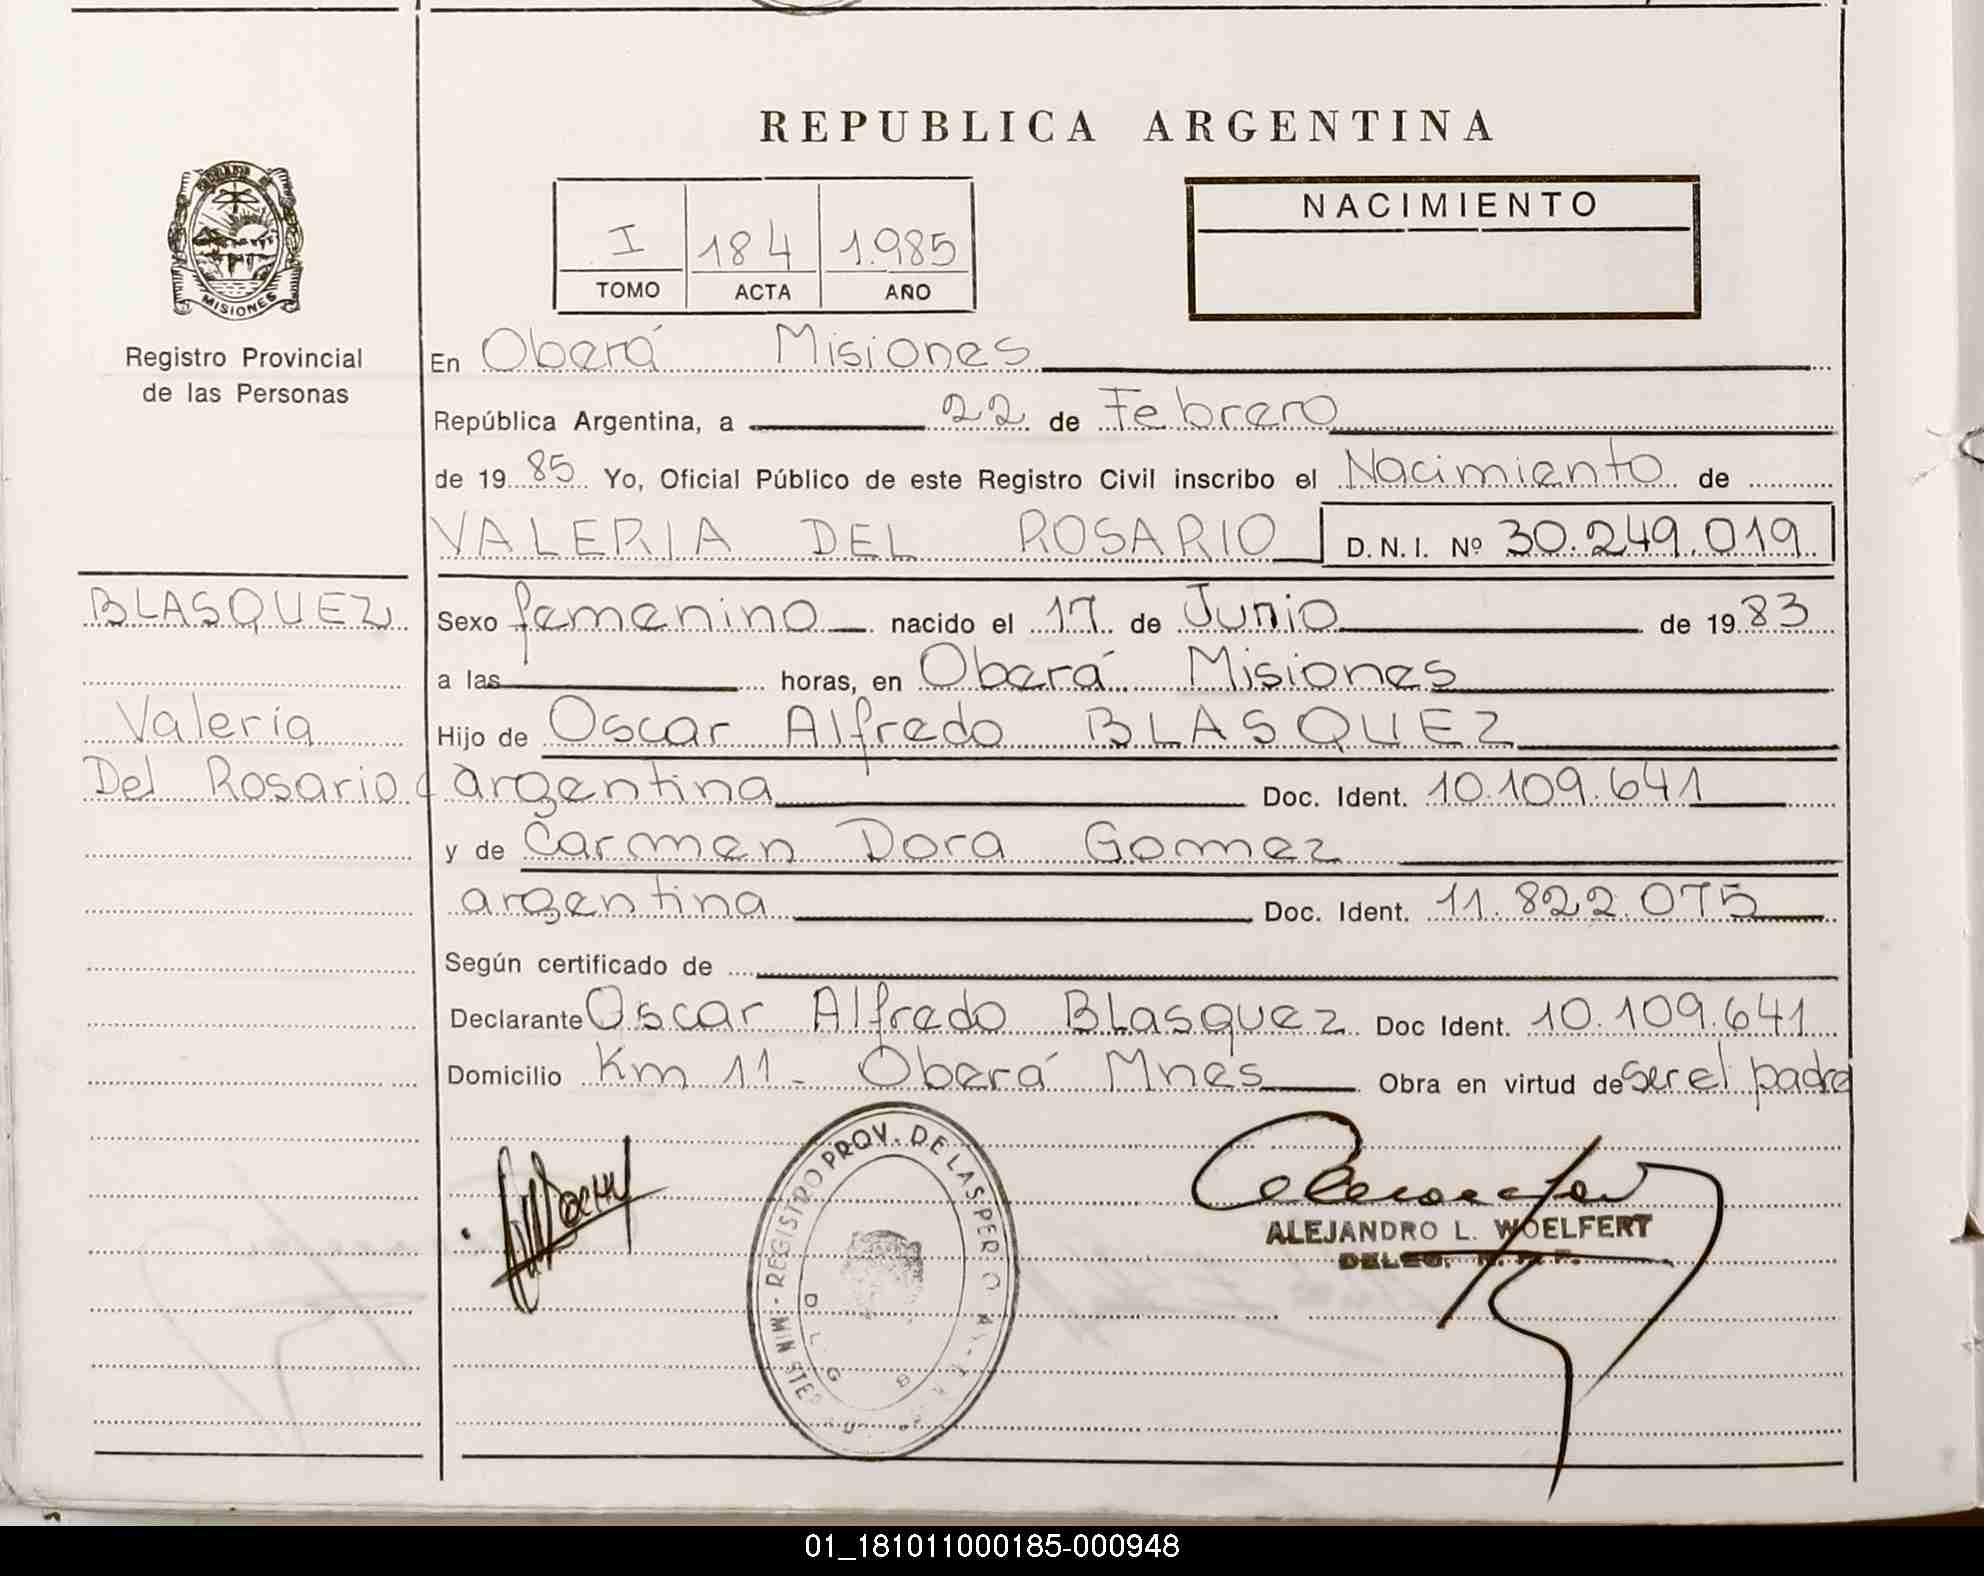 REPUBLICA ARGENTINA
NACIMIENTO
I 184 1.985
TOMO ACTA AÑO
MISIONES
Registro Provincial
de las Personas
En Oberá Misiones
República Argentina, a 22 de Febrero
de 1985 Yo, Oficial Público de este Registro Civil inscribo el Nacimiento de
VALERIA DEL ROSARIO D.N.I. Nº 30.249.019
BLASQUEZ
Valeria
Del Rosario
Sexo femenino nacido el 17 de Junio de 1983
a las horas, en Oberá Misiones
Hijo de Oscar Alfredo BLASQUEZ
argentina Doc. Ident. 10.109.641
y de Carmen Dora Gomez
argentina Doc. Ident. 11.822.075
Según certificado de
Declarante Oscar Alfredo Blasquez Doc Ident. 10.109.641
Domicilio Km 11 - Oberá Mnes Obra en virtud de ser el padre
REGISTRO PROV. DE LAS PER
ALEJANDRO L. WOELFERT
01_181011000185-000948